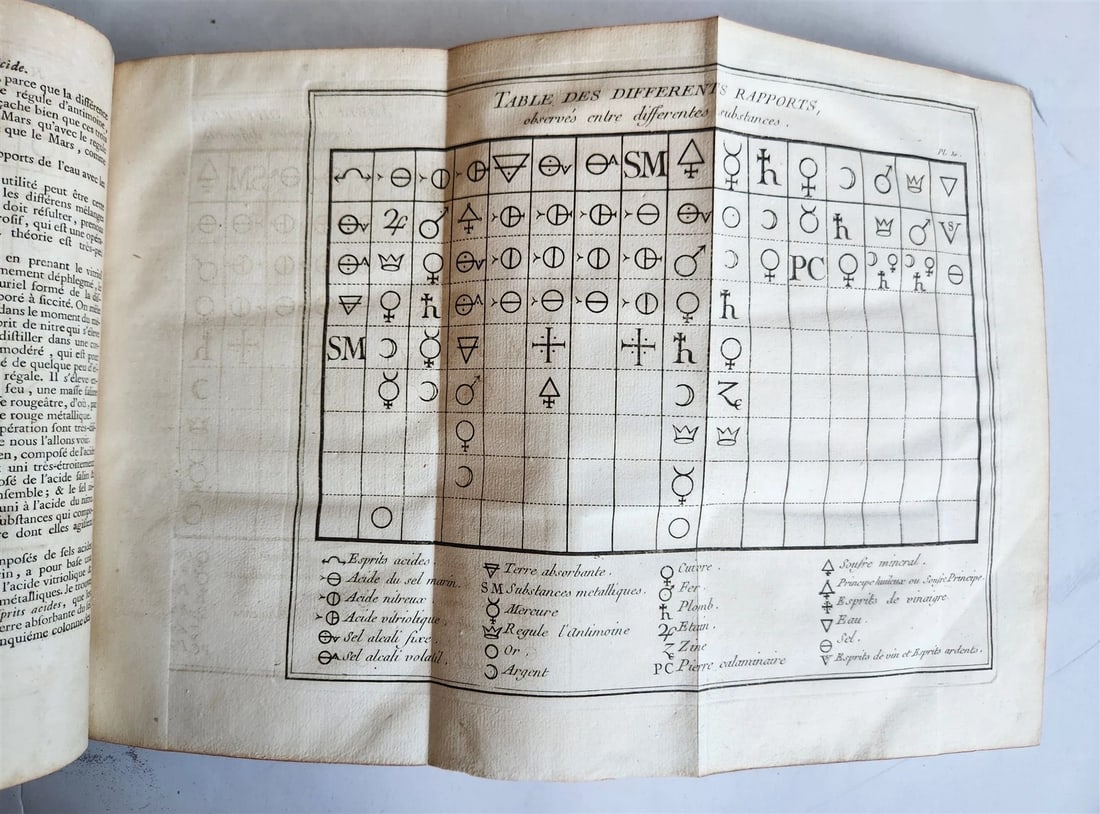 cide.
parce que la différence
e régule d'antimoine,
çache bien que ces trois
Mars qu'avec le regule
que le Mars, comme
pports de l'eau avec les
utilité peut être cette
les différens mélanges
doit résulter, premiere
rosif, qui est une opéra-
théorie est très-peu
en prenant le vitriol
nement déphlegmé, les
uriel formé de la dif-
poré à siccité. On même
dans le moment du mê-
prit de nitre qui s'éleve
distiller dans une cor-
modéré, qui est pour
é de quelque peu d'es-
régale. Il s'éleve en-
feu, une masse saline
e rougeâtre, d'où, par
e rouge métallique.
pération sont très-dif-
e nous l'allons voir.
en, composé de l'acide
uni très-étroitement
osé de l'acide salin &
nsemble; & le sel am-
uni à l'acide du nitre
ubstances qui compo-
re dont elles agissent
mposés de sels acides
rin, a pour base une
l'acide vitriolique &
métalliques. Je trouve
prits acides, que les
erre absorbante du sel
nquiéme colonne des
TABLE DES DIFFERENTS RAPPORTS,
observés entre differentes substances.
SM
PC
SM
Esprits acides.
Acide du sel marin.
Acide nitreux.
Acide vitriolique.
Sel alcali fixe.
Sel alcali volatil.
Terre absorbante.
SM Substances metalliques.
Mercure
Regule l'Antimoine
Or.
Argent
Cuivre.
Fer.
Plomb.
Etain.
Zinc
PC Pierre calaminaire
Soufre mineral.
Principe huileux ou Soufre Principe.
Esprits de vinaigre.
Eau.
Sel.
Esprits de vin et Esprits ardents.